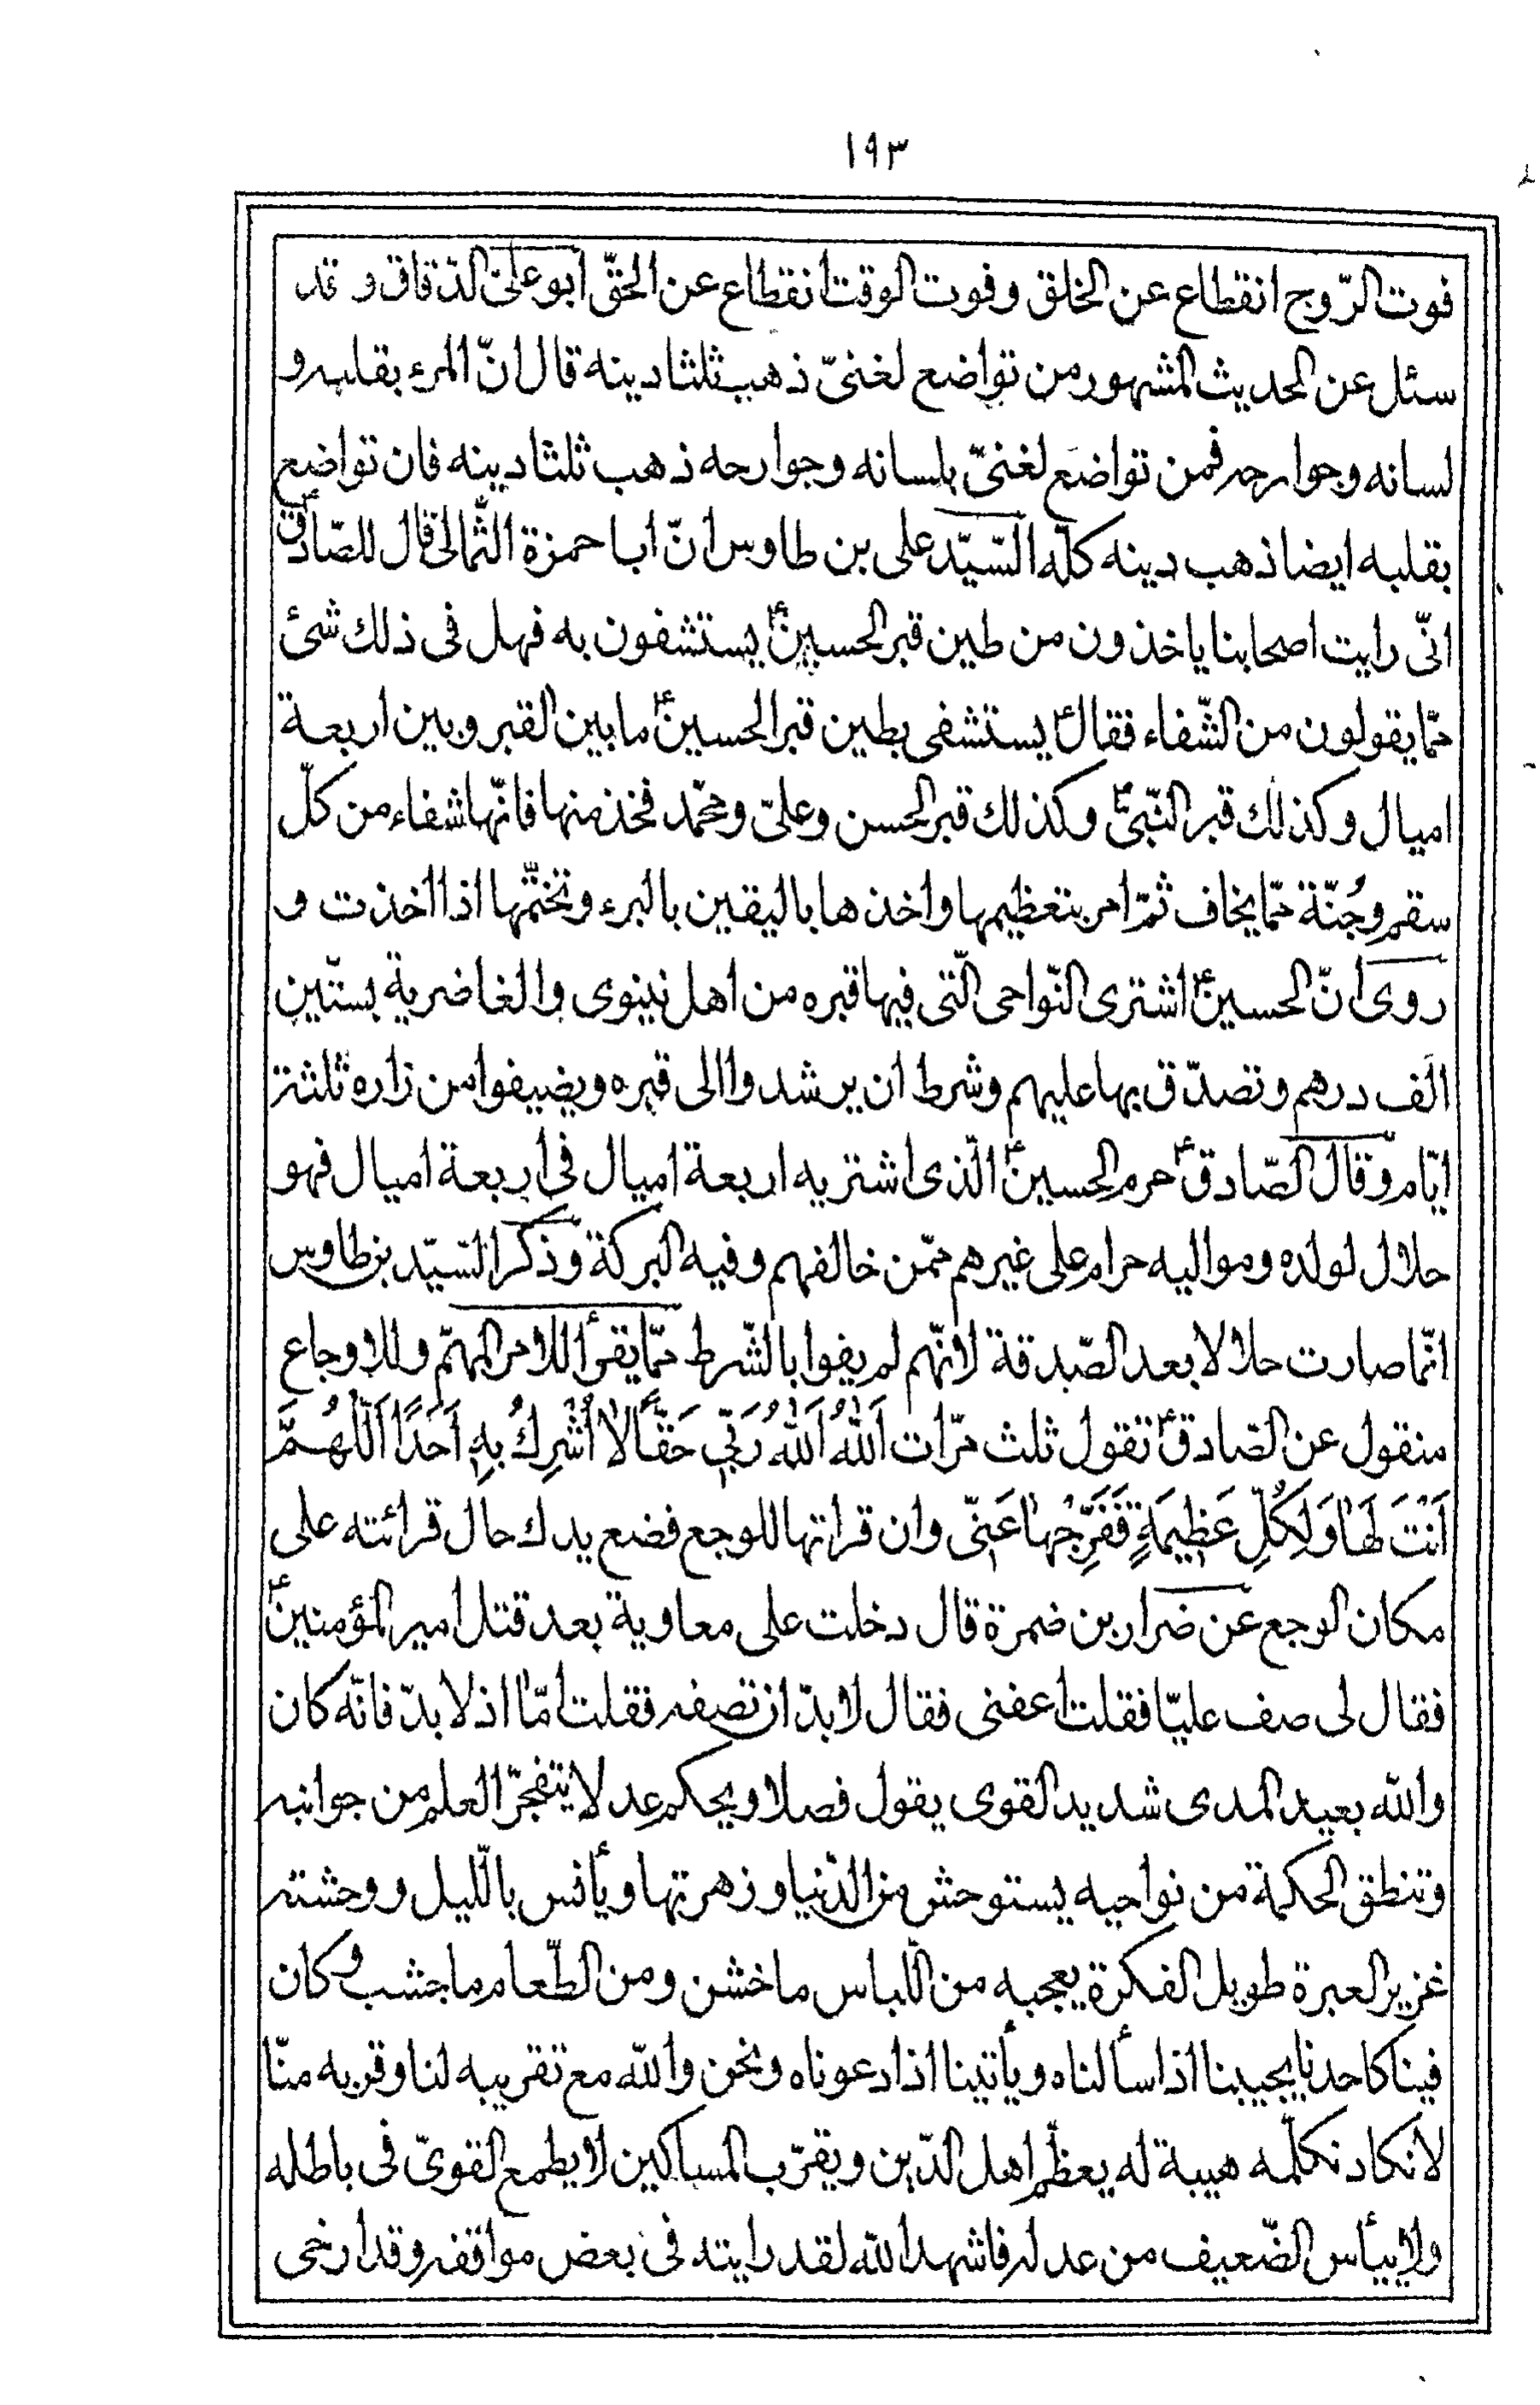 ١٩٣
فوت الرّوج انقطاع عن الخلق وفوت الوقت انقطاع عن الحقّ ابو علىّ الدّقاق و قد
سئل عن الحديث المشهور من تواضع لغنىّ ذهب ثلثا دينه قال انّ المرء بقلبه و
لسانه وجوارحه فمن تواضع لغنىّ بلسانه وجوارحه ذهب ثلثا دينه فان تواضع
بقلبه ايضا ذهب دينه كلّه السّيّد على بن طاوس انّ ابا حمزة الثّمالى قال للصّادقؑ
انّى رايت اصحابنا ياخذون من طين قبر الحسينؑ يستشفون به فهل فى ذلك شئ
ممّا يقولون من الشّفاء فقالؑ يستشفى بطين قبر الحسينؑ ما بين القبر وبين اربعة
اميال وكذلك قبر النّبىّؐ وكذلك قبر الحسن وعلىّ ومحمّد فخذ منها فانّها شفاء من كلّ
سقم وجُنّة ممّا يخاف ثمّ امر بتعظيمها واخذها باليقين بالبرء وتختّمها اذا اخذت و
روى انّ الحسينؑ اشترى النّواحى الّتى فيها قبره من اهل نينوى والغاضرية بستّين
الف درهم وتصدّق بها عليهم وشرط ان يرشدوا الى قبره ويضيفوا من زاره ثلثة
ايّام وقال الصّادقؑ حرم الحسينؑ الّذى اشتريه اربعة اميال فى اربعة اميال فهو
حلال لولده ومواليه حرام على غيرهم ممّن خالفهم وفيه البركة وذكر السّيّد بن طاوس
انّما صارت حلالا بعد الصّدقة لانّهم لم يفوا بالشّرط ممّا يقرأ للامر المهمّ وللاوجاع
منقول عن الصّادقؑ تقول ثلث مرّات اَللّٰهُ اَللّٰهُ رَبّي حَقًّا لا اُشْرِكُ بِهِ اَحَدًا اَللّهُمَّ
اَنْتَ لَها وَلِكُلِّ عَظِيمَةٍ فَفَرِّجْها عَنّى وان قراتها للوجع فضع يدك حال قرائته على
مكان الوجع عن ضرار بن ضمرة قال دخلت على معاوية بعد قتل امير المؤمنينؑ
فقال لى صف عليّا فقلت اعفنى فقال لا بدّ ان تصفه فقلت امّا اذ لا بدّ فانّه كان
والله بعيد المدى شديد القوى يقول فصلا ويحكم عدلا يتفجّر العلم من جوانبه
وتنطق الحكمة من نواحيه يستوحش من الدّنيا وزهرتها ويأنس بالّليل ووحشته
غزير العبرة طويل الفكرة يعجبه من اللّباس ما خشن ومن الطّعام ما جشب وكان
فينا كاحدنا يجيبنا اذا سألناه ويأتينا اذا دعوناه ونحن والله مع تقريبه لنا وقربه منّا
لا نكاد نكلّمه هيبة له يعظّم اهل الدّين ويقرّب المساكين لا يطمع القوىّ فى باطله
ولا ييأس الضّعيف من عدله فاشهد الله لقد رايته فى بعض مواقفه وقد ارخى